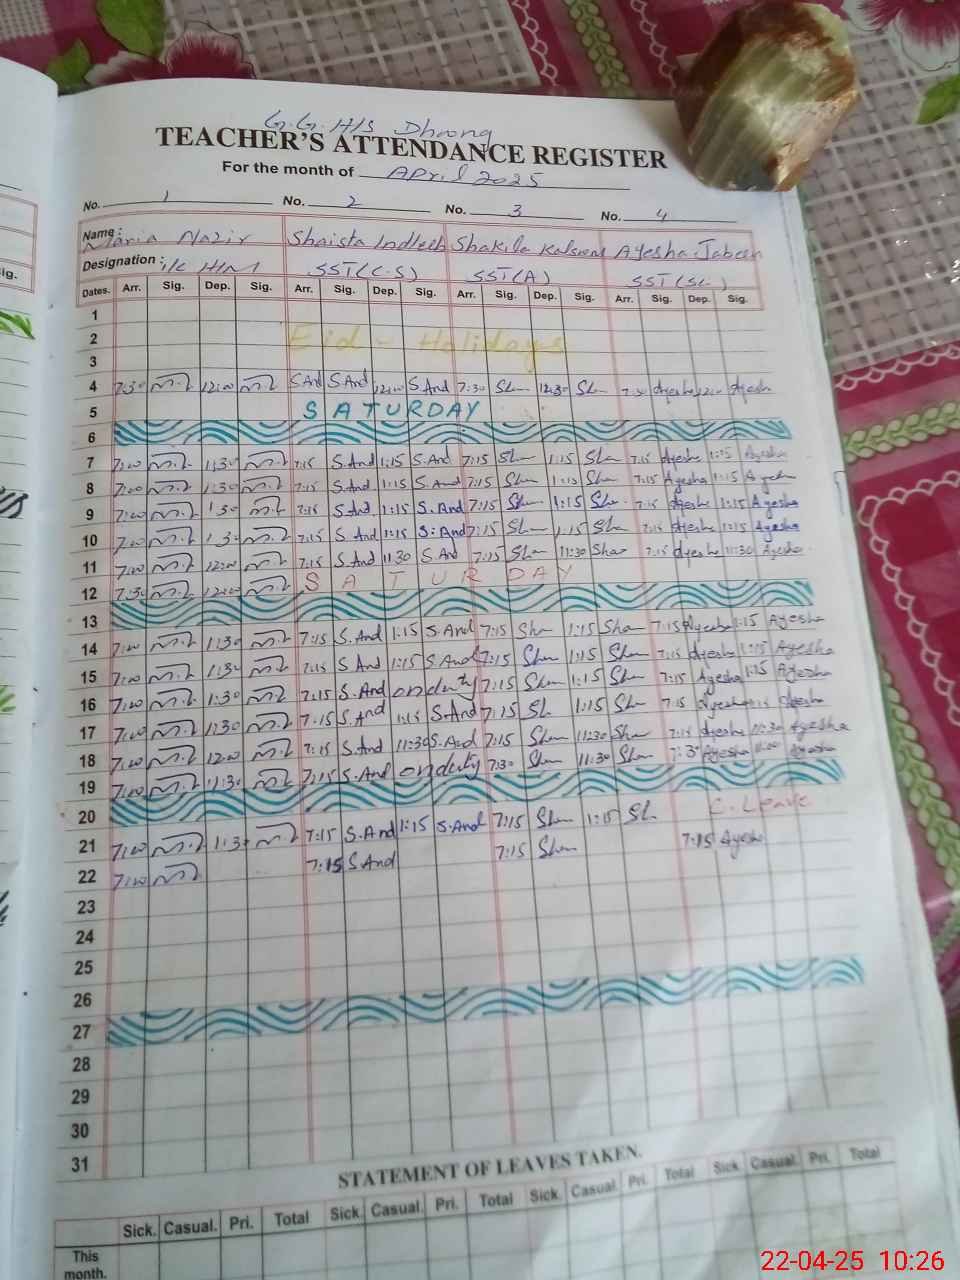 G.G.H/S Dhrong
TEACHER'S ATTENDANCE REGISTER
For the month of April 2025
No. 1 No. 2 No. 3 No. 4
Name: Maria Nazir Shaista Shakila Kalsoom Ayesha Jabeen
Designation: i/c H/M SST(C.S) SST(A) SST(Sc.)
Dates. Arr. Sig. Dep. Sig. Arr. Sig. Dep. Sig. Arr. Sig. Dep. Sig. Arr. Sig. Dep. Sig.
1
2 Eid - Holidays
3
4 7:30 12:00 S.And S.And 12:00 S.And 7:30 Sha 12:30 Sha Ayesha Ayesha
5 SATURDAY
6
7 7:00 1:30 7:15 S.And 1:15 S.And 7:15 Sha 1:15 Sha 7:15 Ayesha 1:15 Ayesha
8 7:00 1:30 7:15 S.And 1:15 S.And 7:15 Sha 1:15 Sha 7:15 Ayesha 1:15 Ayesha
9 7:00 1:30 7:15 S.And 1:15 S.And 7:15 Sha 1:15 Sha 7:15 Ayesha 1:15 Ayesha
10 7:00 1:30 7:15 S.And 1:15 S.And 7:15 Sha 1:15 Sha 7:15 Ayesha 1:15 Ayesha
11 7:00 12:00 7:15 S.And 11:30 S.And 7:15 Sha 11:30 Sha 7:15 Ayesha 11:30 Ayesha
12 7:30 12:00 SATURDAY
13
14 7:00 1:30 7:15 S.And 1:15 S.And 7:15 Sha 1:15 Sha 7:15 Ayesha 1:15 Ayesha
15 7:00 1:30 7:15 S.And 1:15 S.And 7:15 Sha 1:15 Sha 7:15 Ayesha 1:15 Ayesha
16 7:00 1:30 7:15 S.And onduty 7:15 Sha 1:15 Sha 7:15 Ayesha 1:15 Ayesha
17 7:00 1:30 7:15 S.And 1:15 S.And 7:15 Sh 1:15 Sha 7:15 Ayesha 1:15 Ayesha
18 7:00 12:00 7:15 S.And 11:30 S.And 7:15 Sha 11:30 Sha 7:15 Ayesha 11:30 Ayesha
19 7:00 11:30 7:15 S.And onduty 7:30 Sha 11:30 Sha 7:30 Ayesha 11:00 Ayesha
20
21 7:00 1:30 7:15 S.And 1:15 S.And 7:15 Sha 1:15 Sh C.Leave
22 7:00 7:15 S.And 7:15 Sha 7:15 Ayesha
23
24
25
26
27
28
29
30
31
STATEMENT OF LEAVES TAKEN.
Sick. Casual. Pri. Total Sick. Casual. Pri. Total Sick. Casual. Pri. Total Sick. Casual. Pri. Total
This month.
22-04-25 10:26